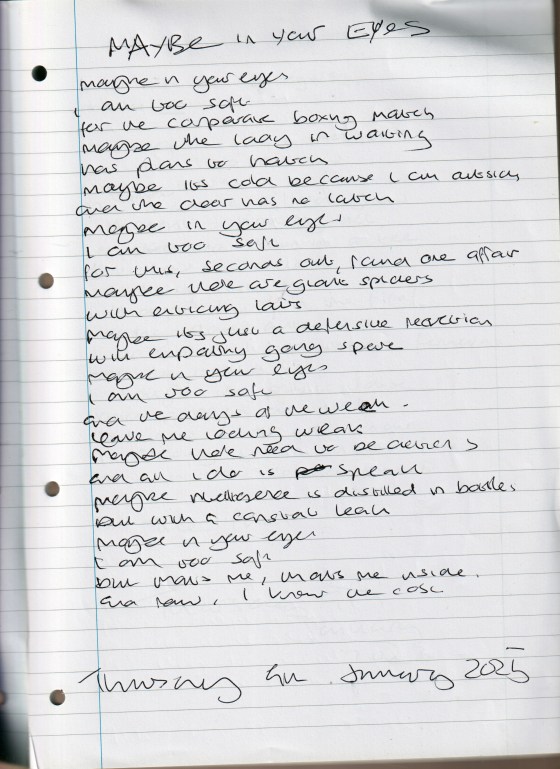 MAYBE in your EYES
maybe in your eyes
I am too soft
for the corporate boxing match
maybe the lady in waiting
has plans to hatch
maybe its cold because I am outside
and the door has no latch
maybe in your eyes
I am too soft
for this, seconds out, round one affair
maybe there are giant spiders
with enticing lairs
maybe its just a defensive reaction
with empathy going spare
maybe in your eyes
I am too soft
and the days of the week
leave me looking weak
maybe there need to be actions
and all I do is speak
maybe intelligence is distilled in bottles
but with a constant leak
maybe in your eyes
I am too soft
but that's me, that's me inside.
and now, I know the cost
Thursday January 2025